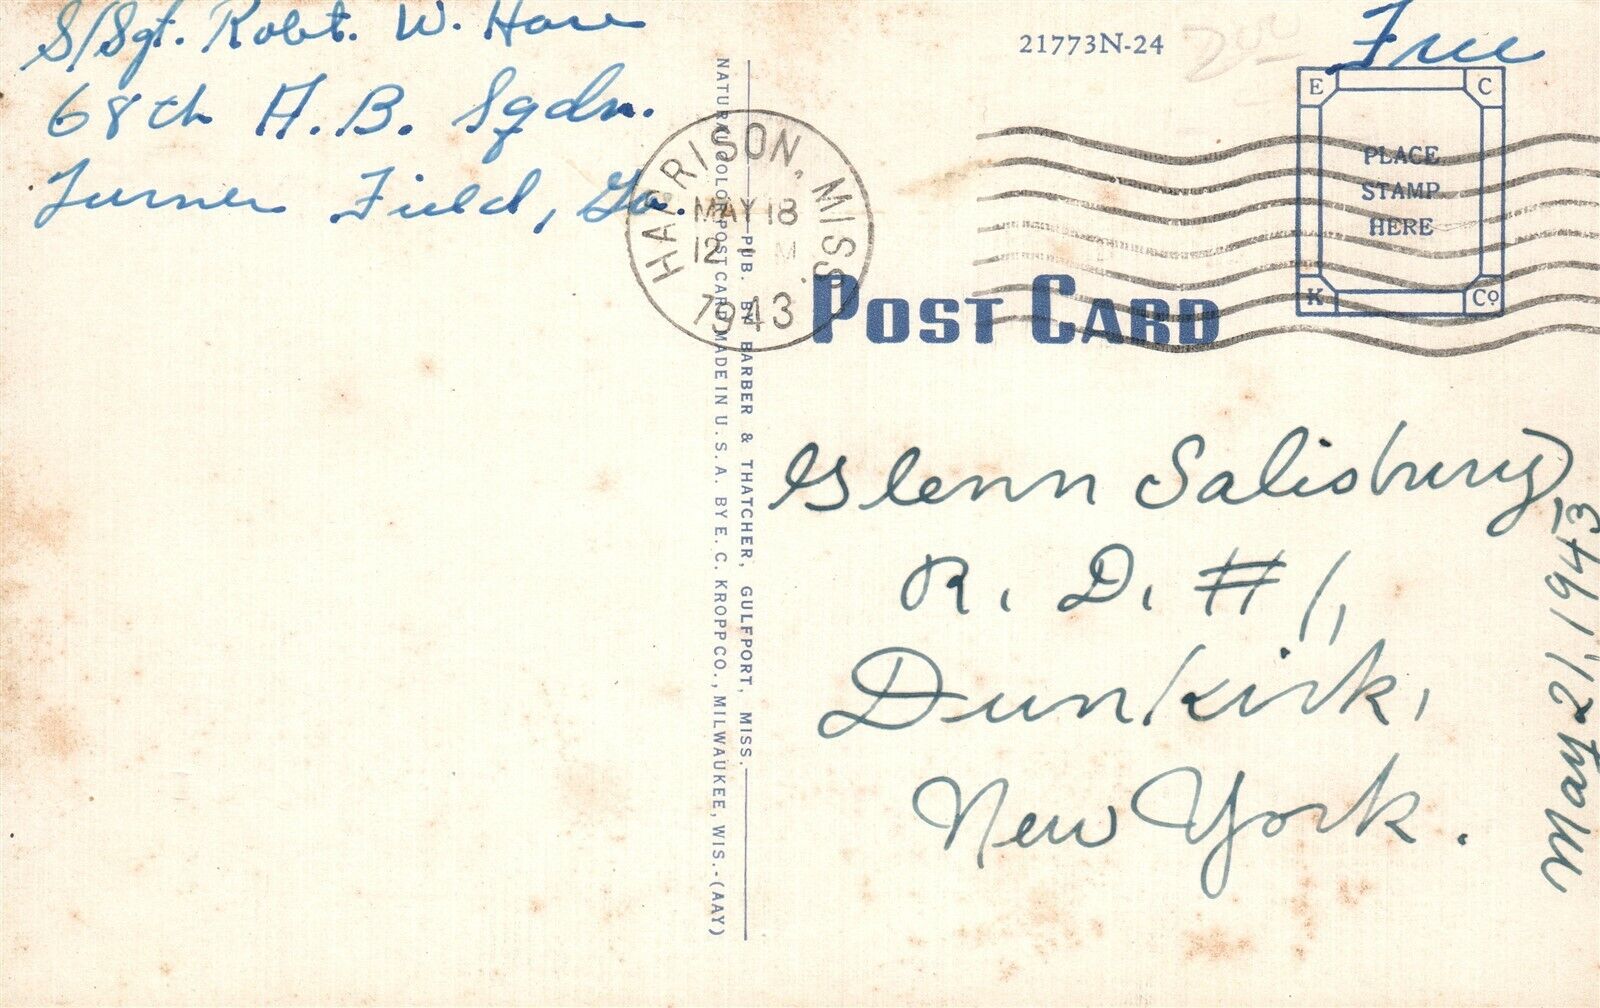 S/Sgt. Robt. W. Hare
68th A.B. Sqdn.
Turner Field, Ga.
21773N-24
200
Free
E C
PLACE
STAMP
HERE
K Co.
HARRISON, MISS.
MAY 18
12 M
1943
POST CARD
PUB. BY BARBER & THATCHER, GULFPORT, MISS.
NATURAL COLOR POST CARD MADE IN U.S.A. BY E. C. KROPP CO., MILWAUKEE, WIS.-(AAY)
Glenn Salisbury,
R. D. #1,
Dunkirk,
New York.
May 21, 1943